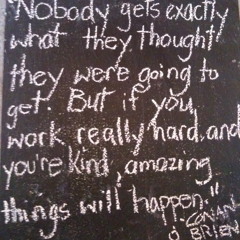 "Nobody gets exactly
what they thought
they were going to
get. But if you
work really hard, and
you're kind, amazing
things will happen."
-CONAN
O'BRIEN